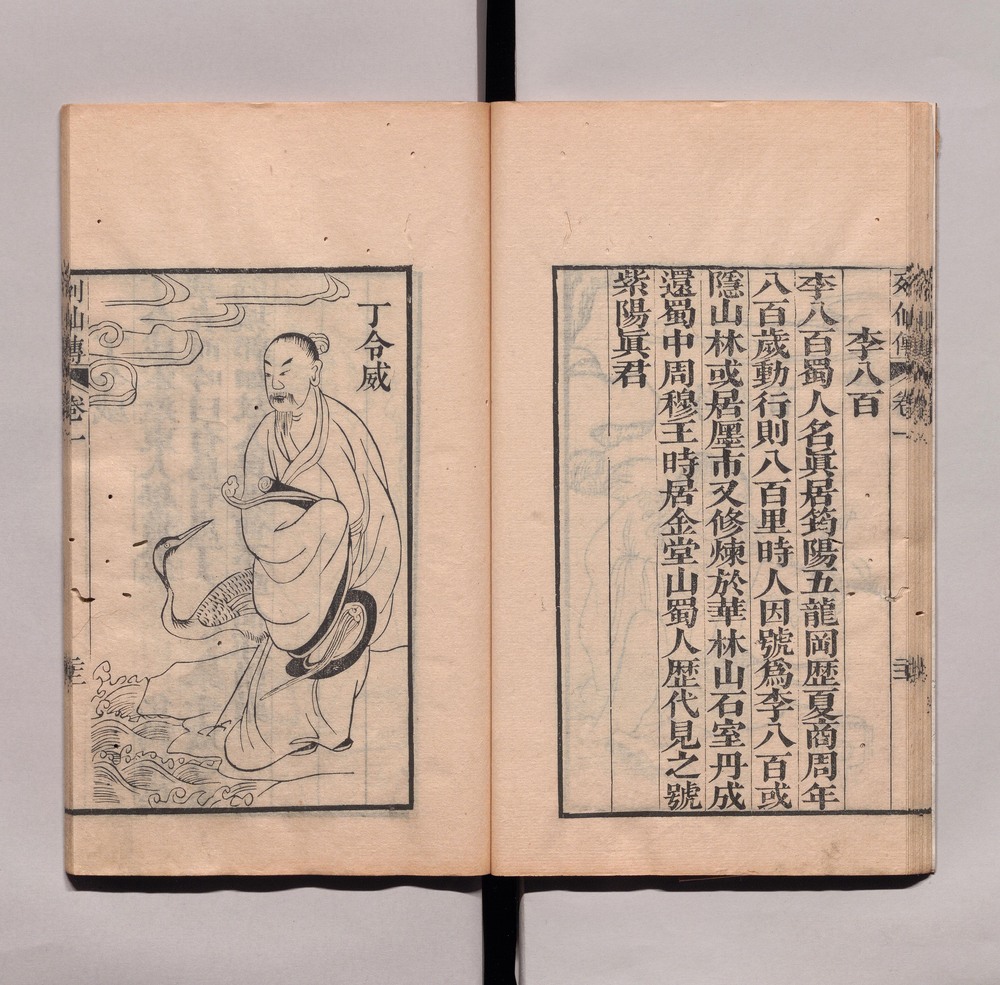 李八百
李八百蜀人名眞居筠陽五龍岡歷夏商周年
八百歲動行則八百里時人因號爲李八百或
隱山林或居廛市又修煉於華林山石室丹成
還蜀中周穆王時居金堂山蜀人歷代見之號
紫陽眞君
丁令威
列仙傳
卷一